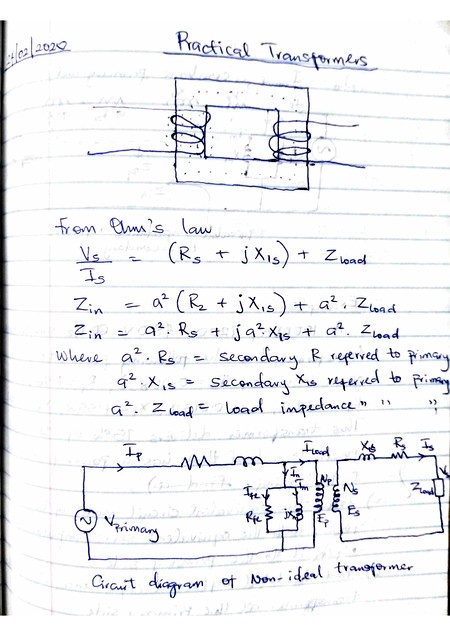 21/02/2020
Practical Transformers
From Ohm's law
Vs/Is = (Rs + jX1s) + Zload
Zin = a² (R2 + jX1s) + a². Zload
Zin = a². Rs + ja² X1s + a². Zload
Where a². Rs = secondary R referred to primary
a². X1s = secondary X1s referred to primary
a². Zload = Load impedance " " "
Ip
Iload
Xs Rs Is
In
Ife Im
Np
Ns
Vs
Rfe jX
Zload
Ep
Es
Vprimary
Circuit diagram of Non-ideal transformer